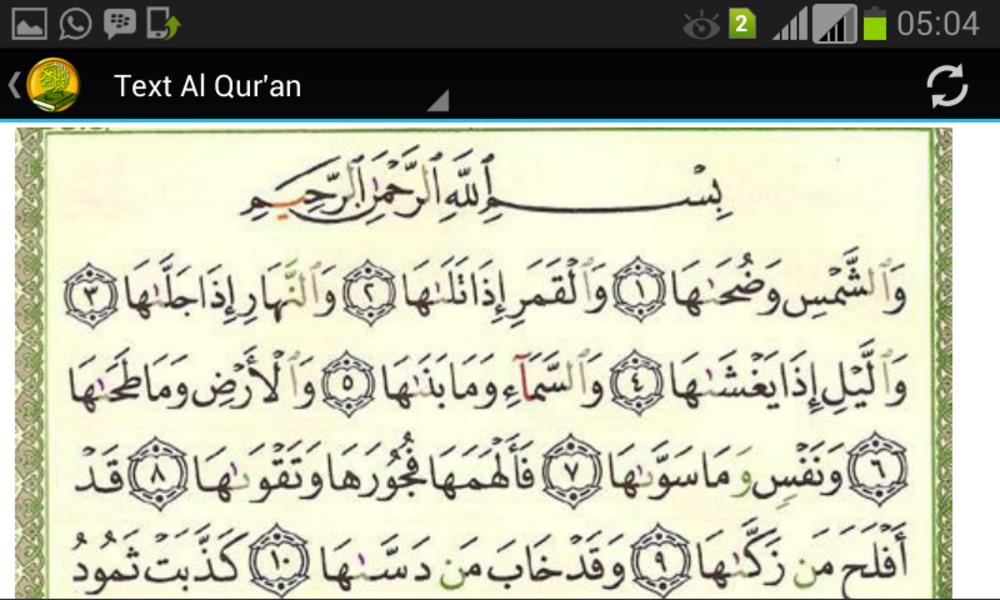 2 05:04
Text Al Qur'an
بِسْمِ ٱللَّهِ ٱلرَّحْمَٰنِ ٱلرَّحِيمِ
وَٱلشَّمْسِ وَضُحَىٰهَا ١ وَٱلْقَمَرِ إِذَا تَلَىٰهَا ٢ وَٱلنَّهَارِ إِذَا جَلَّىٰهَا ٣
وَٱلَّيْلِ إِذَا يَغْشَىٰهَا ٤ وَٱلسَّمَآءِ وَمَا بَنَىٰهَا ٥ وَٱلْأَرْضِ وَمَا طَحَىٰهَا
٦ وَنَفْسٍ وَمَا سَوَّىٰهَا ٧ فَأَلْهَمَهَا فُجُورَهَا وَتَقْوَىٰهَا ٨ قَدْ
أَفْلَحَ مَن زَكَّىٰهَا ٩ وَقَدْ خَابَ مَن دَسَّىٰهَا ١٠ كَذَّبَتْ ثَمُودُ